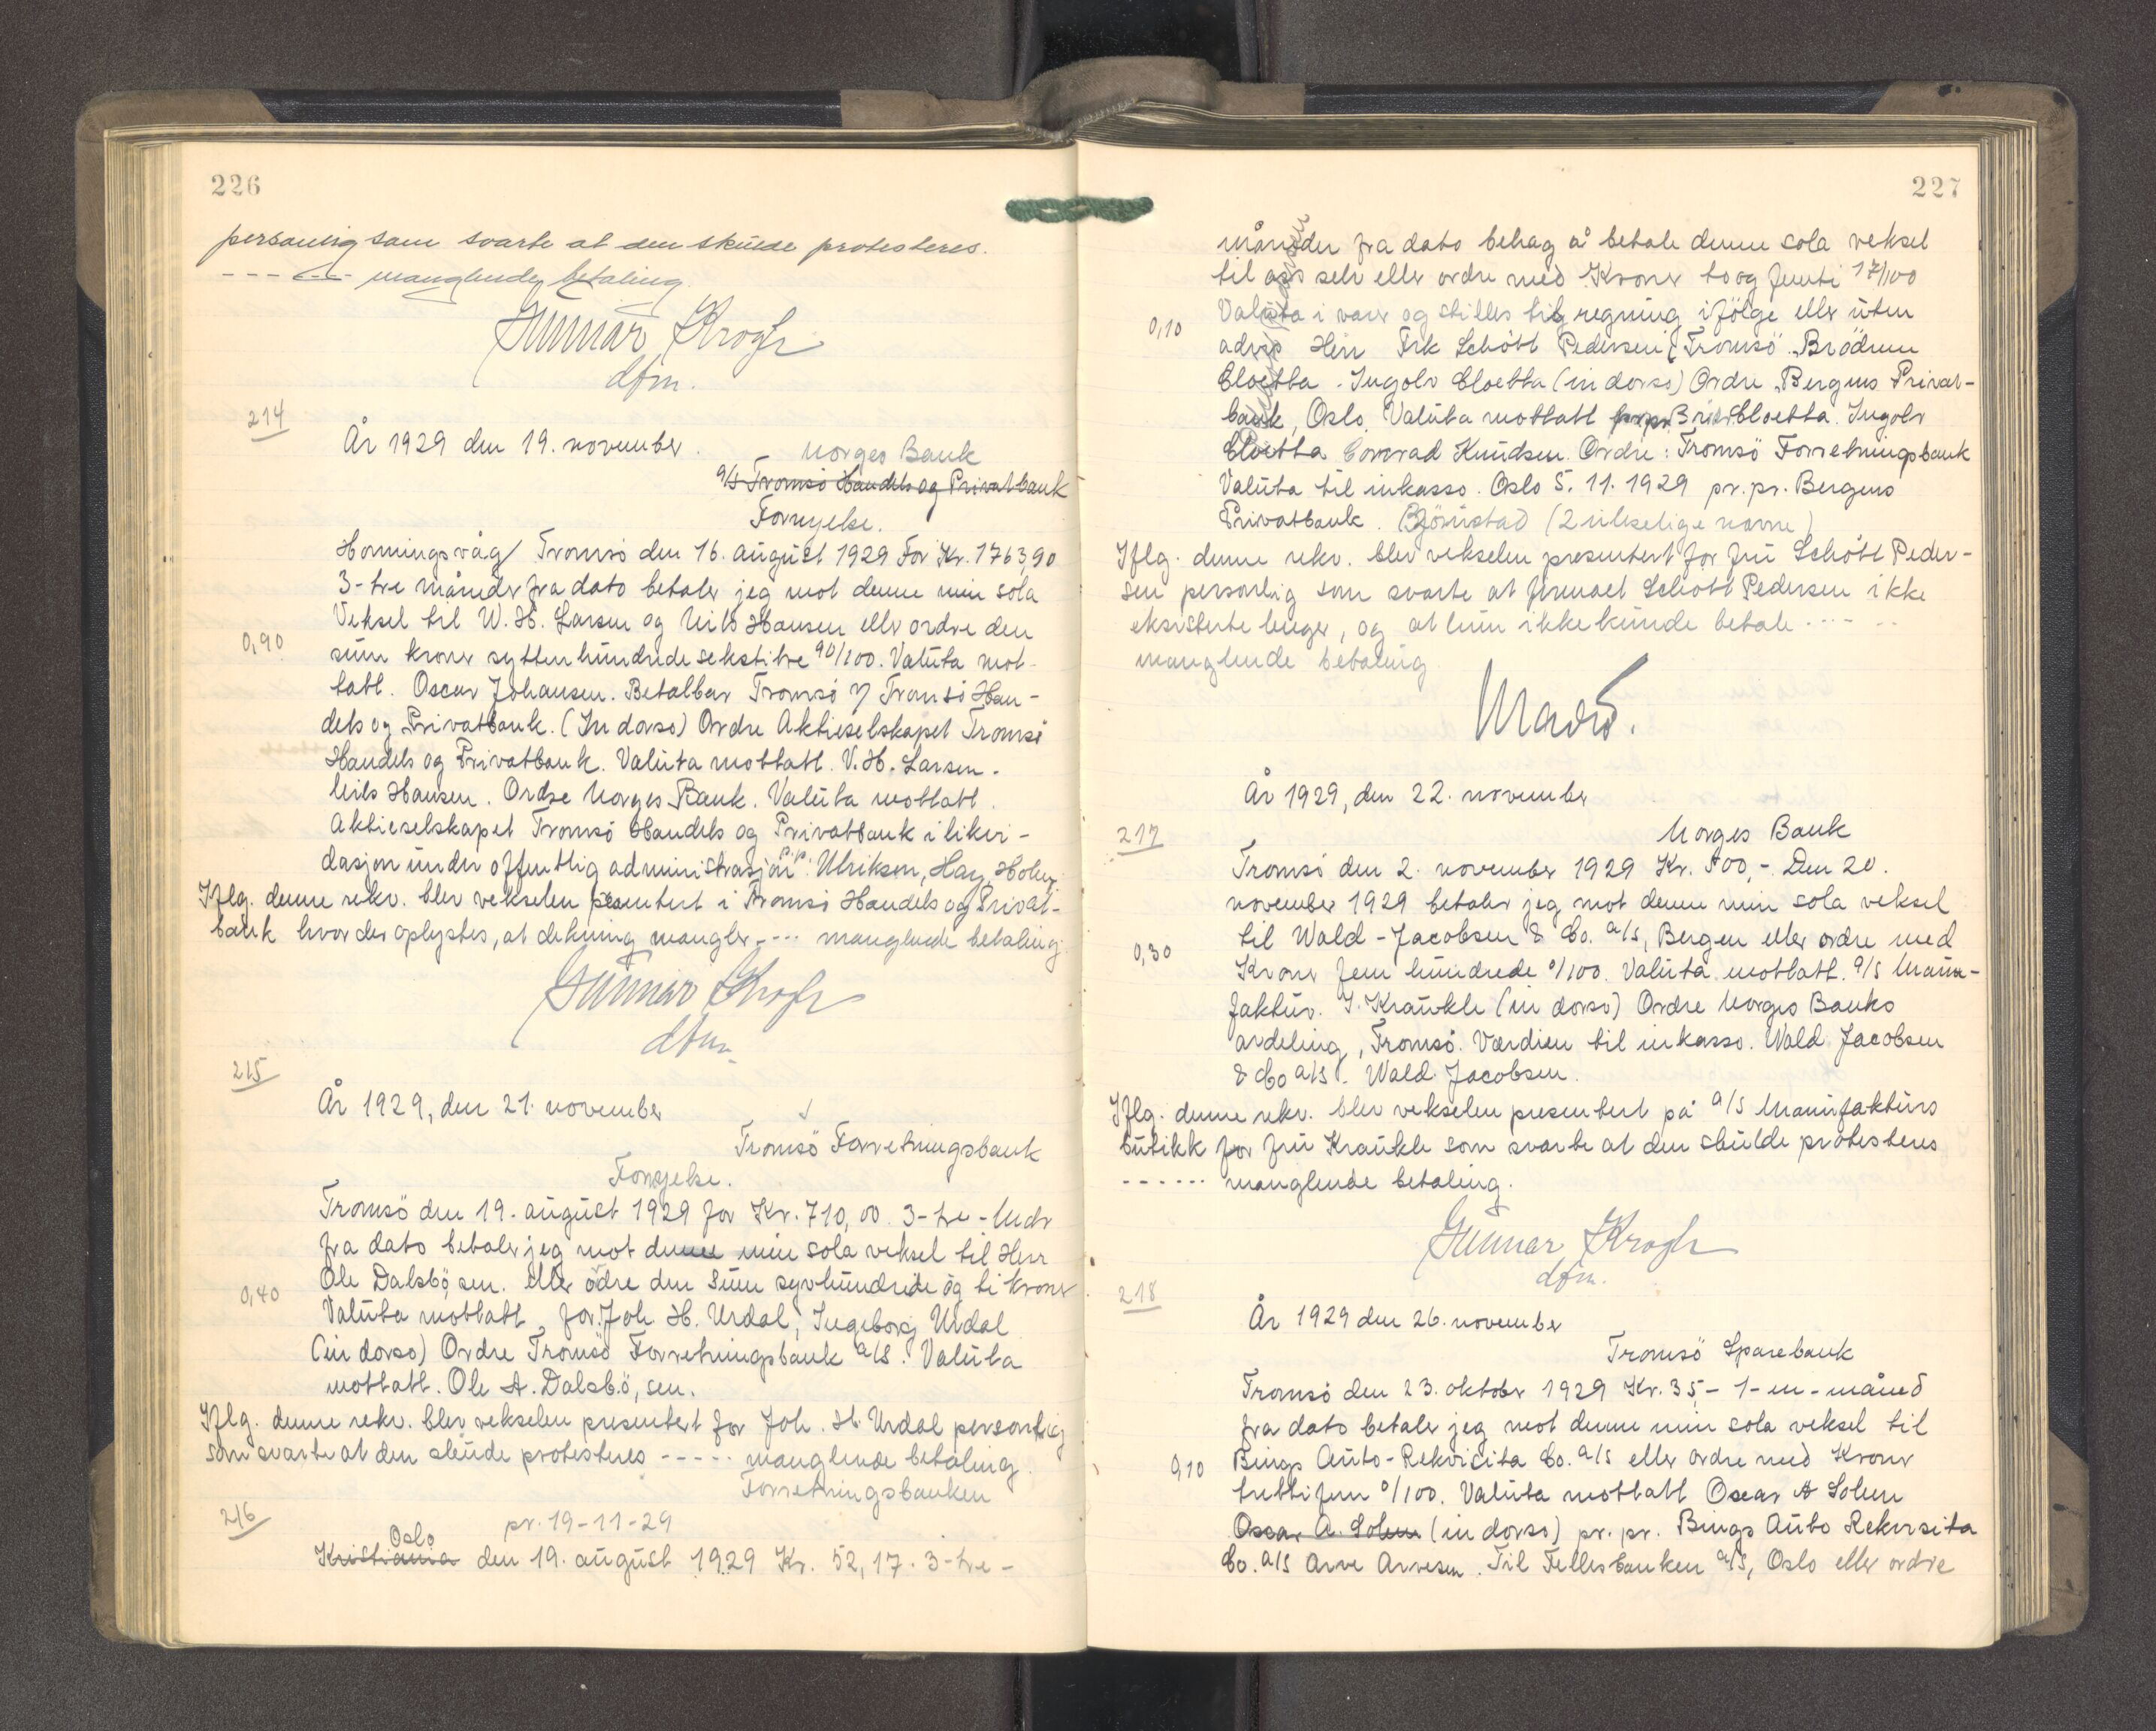 226
personlig som svarte at den skulde protesteres.
- - - - - - manglende betaling.
Gunnar Krogh
dfm.
214
År 1929 den 19. november
Norges Bank
a/s Tromsö Handels og Privatbank
Fornyelse.
Honningsvåg/ Tromsö den 16. august 1929 For Kr. 1763,90
3-tre måneder fra dato betaler jeg mot denne min sola
Veksel til W. H. Larsen og Nils Hansen eller ordre den
0,90
sum kroner sytten hundrede sekstitre 90/100. Valuta mot-
tatt. Oscar Johansen. Betalbar Tromsö Tromsö Han-
dels og Privatbank. (In dorso) Ordre Aktieselskapet Tromsö
Handels og Privatbank. Valuta mottatt. V. H. Larsen.
Nils Hansen. Ordre Norges Bank. Valuta mottatt.
Aktieselskapet Tromsö Handels og Privatbank i likvi-
dasjon under offentlig administrasjon p.p. Ulriksen, Hay,
Iflg. denne rekv. blev vekselen presentert i Tromsö Handels og Privat-
bank hvor der oplystes, at dekning mangler - - - - manglende betaling.
Gunnar Krogh
dfm.
215
År 1929, den 21. november
Tromsö Forretningsbank
Fornyelse.
Tromsö den 19. august 1929 for Kr. 710,00 3-tre-Mndr
fra dato betaler jeg mot denne min sola veksel til Herr
Ole Dalsbö sen. eller ordre den Sum syvhundrede og ti kroner
0,40
Valuta mottatt for Joh H. Urdal, Ingeborg Urdal
(in dorso) Ordre Tromsö Forretningsbank a/s. Valuta
mottatt. Ole A. Dalsbö, sen.
Iflg. denne rekv. blev vekselen presentert for Joh. H. Urdal personlig
som svarte at den skulde protesteres - - - - - manglende betaling.
Forretningsbanken
216
pr. 19-11-29
Oslo
Kristiania den 19. august 1929 Kr. 52,17. 3-tre-
227
måneder fra dato behag å betale denne sola veksel
til oss selv eller ordre med Kroner to og femti 17/100
Valuta i varer og stilles til regning ifölge eller uten
0,10
advis Herr Frk Schött Pedersen, Tromsö. Brödrene
Cloetta. Ingolv Cloetta (in dorso) Ordre Bergens Privat-
bank, Oslo. Valuta mottatt pr.pr. Brdr. Cloetta. Ingolv
Cloetta Conrad Knudsen. Ordre: Tromsö Forretningsbank
Valuta til inkasso. Oslo 5. 11. 1929 pr. pr. Bergens
Privatbank. Björnstad (2 uleselige navne)
Iflg. denne rekv. blev vekselen presentert for fru Schött Peder-
sen personlig som svarte at firmaet Schött Pedersen ikke
eksisterte lenger, og at hun ikke kunde betale - - - - - -
manglende betaling
År 1929, den 22. november
217
Norges Bank
Tromsö den 2. november 1929 Kr. 500,-. Den 20.
november 1929 betaler jeg mot denne min sola veksel
til Wald-Jacobsen & Co. a/s, Bergen eller ordre med
0,30
Kroner fem hundrede 0/100. Valuta mottatt. a/s Manu-
faktur. J. Kraukle (in dorso) Ordre Norges Banks
avdeling, Tromsö. Verdien til inkasso. Wald Jacobsen
& Co a/s. Wald Jacobsen.
Iflg. denne rekv. blev vekselen presentert på a/s Manufakturs
butikk for fru Kraukle som svarte at den skulde protesteres
- - - - - - manglende betaling.
Gunnar Krogh
dfm.
218
År 1929 den 26. november
Tromsö Sparebank
Tromsö den 23. oktober 1929 Kr. 35,- 1-en-måned
fra dato betaler jeg mot denne min sola veksel til
0,10
Bings Auto-Rekvisita Co. a/s eller ordre med Kroner
trettifem 0/100. Valuta mottatt Oscar A Solem
Oscar A. Solem (in dorso) pr. pr. Bings Auto Rekvisita
Co. a/s Arve Arvesen. Til Fellesbanken a/s, Oslo eller ordre